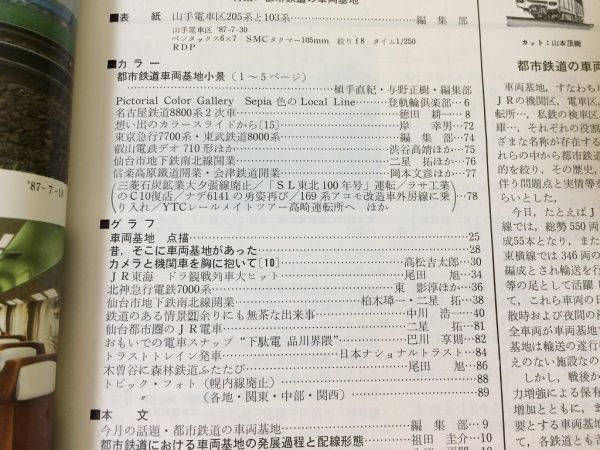 ■表　紙　山手電車区205系と103系 編　集　部
山手電車区 '87-7-30
ペンタックス6×7　SMCタクマー105mm　絞り f8　タイム1/250
RDP
■カ ラ ー
都市鉄道車両基地小景（1〜5ページ）
植手直紀・与野正樹・編集部
Pictorial Color Gallery　Sepia 色の Local Line 登軌輪倶楽部 6
名古屋鉄道8800系2次車 徳田　耕一 8
想い出のカラースライドから〔15〕 岸　幸男 72
東京急行7700系・東武鉄道8000系 編　集　部 74
叡山電鉄デオ710形ほか 渋谷高靖ほか 75
仙台市地下鉄南北線開業 二星　拓ほか 76
信楽高原鐵道開業・会津鉄道開業 岡本文彦ほか 77
（三菱石炭鉱業大夕張線廃止／「SL東北100年号」運転／ラサ工業
のC10復活／ナデ6141の勇姿再び／169系アコモ改造車外房線に乗
り入れ／YTCレールメイトツアー高崎運転所へ　ほか） 78
■グ ラ フ
車両基地　点描 25
昔，そこに車両基地があった 28
カメラと機関車を胸に抱いて〔10〕 高松吉太郎 30
JR東海　ドラ観戦列車大ヒット 尾田　旭 34
北神急行電鉄7000系 東　影淳ほか 36
仙台市地下鉄南北線開業 柏木璋一・二星　拓 38
鉄道のある情景21余りにも無茶な出来事 中川　浩一 40
仙台都市圏のJR電車 二星　拓 81
おもいでの電車スナップ“下駄電 品川界隈” 巴川　享則 82
トラストトレイン発車 日本ナショナルトラスト 84
木曽谷に森林鉄道ふたたび 尾田　旭 86
トピック・フォト（幌内線廃止） 88
〃　（各地・関東・中部・関西） 89
■本　文
今月の話題・都市鉄道の車両基地 編　集　部 9
都市鉄道における車両基地の発展過程と配線形態 祖田　圭介 10
'87-7-18
カット：山本茂樹
都市鉄道の車両
車両基地，すなわち
JRの機関区，電車区，
転所…，私鉄の検車区
庫…，それぞれの役割
ざまな名称が存在する
れらの中から都市鉄道
的を絞り，その歴史，
伴う問題点と実情等を
らいとした。
今日，たとえばJ
線では，総勢550両
成55本となり，また
東横線では346両の
編成とされ輸送を行
等の足として活躍し
て，これら車両の日
散時および夜間の滞
全車両が車両基地
基地は輸送の遂行に
えのない施設なの
しかし，戦後か
力増強による保有
増加とともに，ま
要とする車両基地
て，各鉄道とも苦